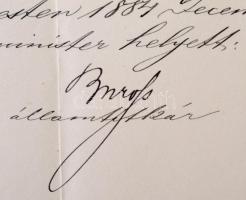 esten 1884 Decem
minister helyett:
Baross
államtitkár